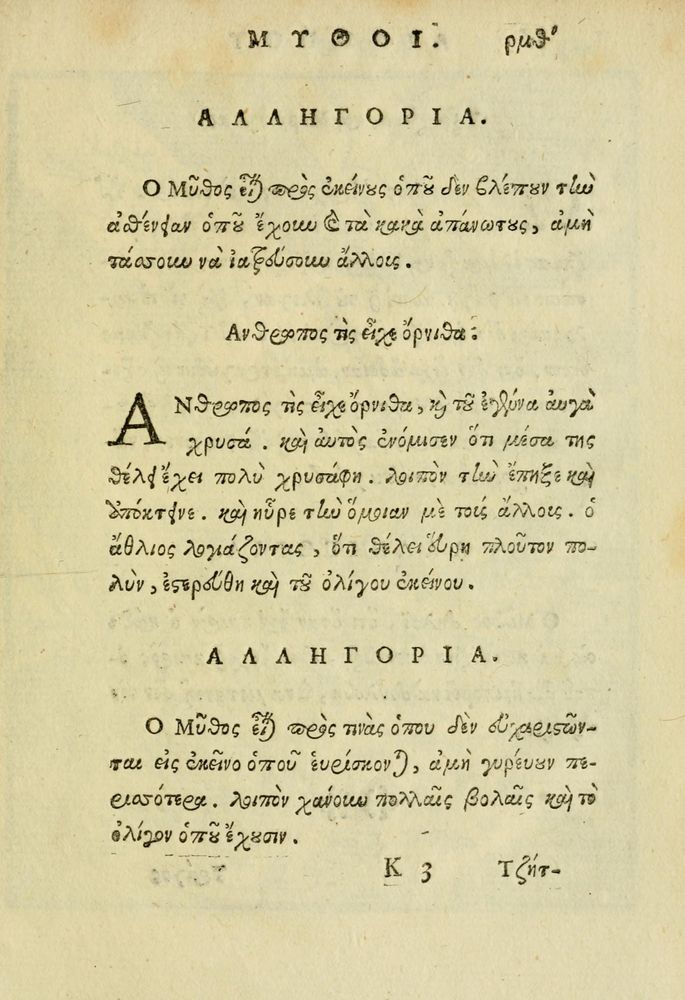 ΜΥΘΟΙ. ρμθʹ
ΑΛΛΗΓΟΡΙΑ.
Ο Μῦθος εἶναι πρὸς ἐκείνους ὁποῦ δὲν βλέπουν τὴν
ἀσθένειαν ὁποῦ ἔχουν καὶ τὰ κακὰ ἀπάνωτους, ἀμὴ
τάσσουν νὰ ἰατρεύσουν ἄλλοις.
Ανθρωπος τὶς εἶχε ὄρνιθα:
ΑΝθρωπος τὶς εἶχε ὄρνιθα, καὶ τοῦ ἐγέννα ἀυγὰ
χρυσά. καὶ ἀυτὸς ἐνόμισεν ὅτι μέσα της
θέλει ἔχει πολὺ χρυσάφη. λοιπὸν τὴν ἔπηξε καὶ
ἀπόκτεινε. καὶ ηὗρε τὴν ὅμοιαν μὲ τοίς ἄλλοις. ὁ
ἄθλιος λογιάζοντας, ὅτι θέλει ἕυρη πλοῦτον πο-
λὺν, ἐστερεύθη καὶ τοῦ ὀλίγου ἐκείνου.
ΑΛΛΗΓΟΡΙΑ.
Ο Μῦθος εἶναι πρὸς τινὰς ὁπου δὲν ἐυχαριστῶν-
ται εἰς ἐκεῖνο ὁποῦ ἑυρίσκονται, ἀμὴ γυρέυουν πε-
ρισσότερα. λοιπὸν χάνουν πολλαῖς βολαῖς καὶ τὸ
ὀλίγον ὁποῦ ἔχουσιν.
Κ 3 Τζήτ-